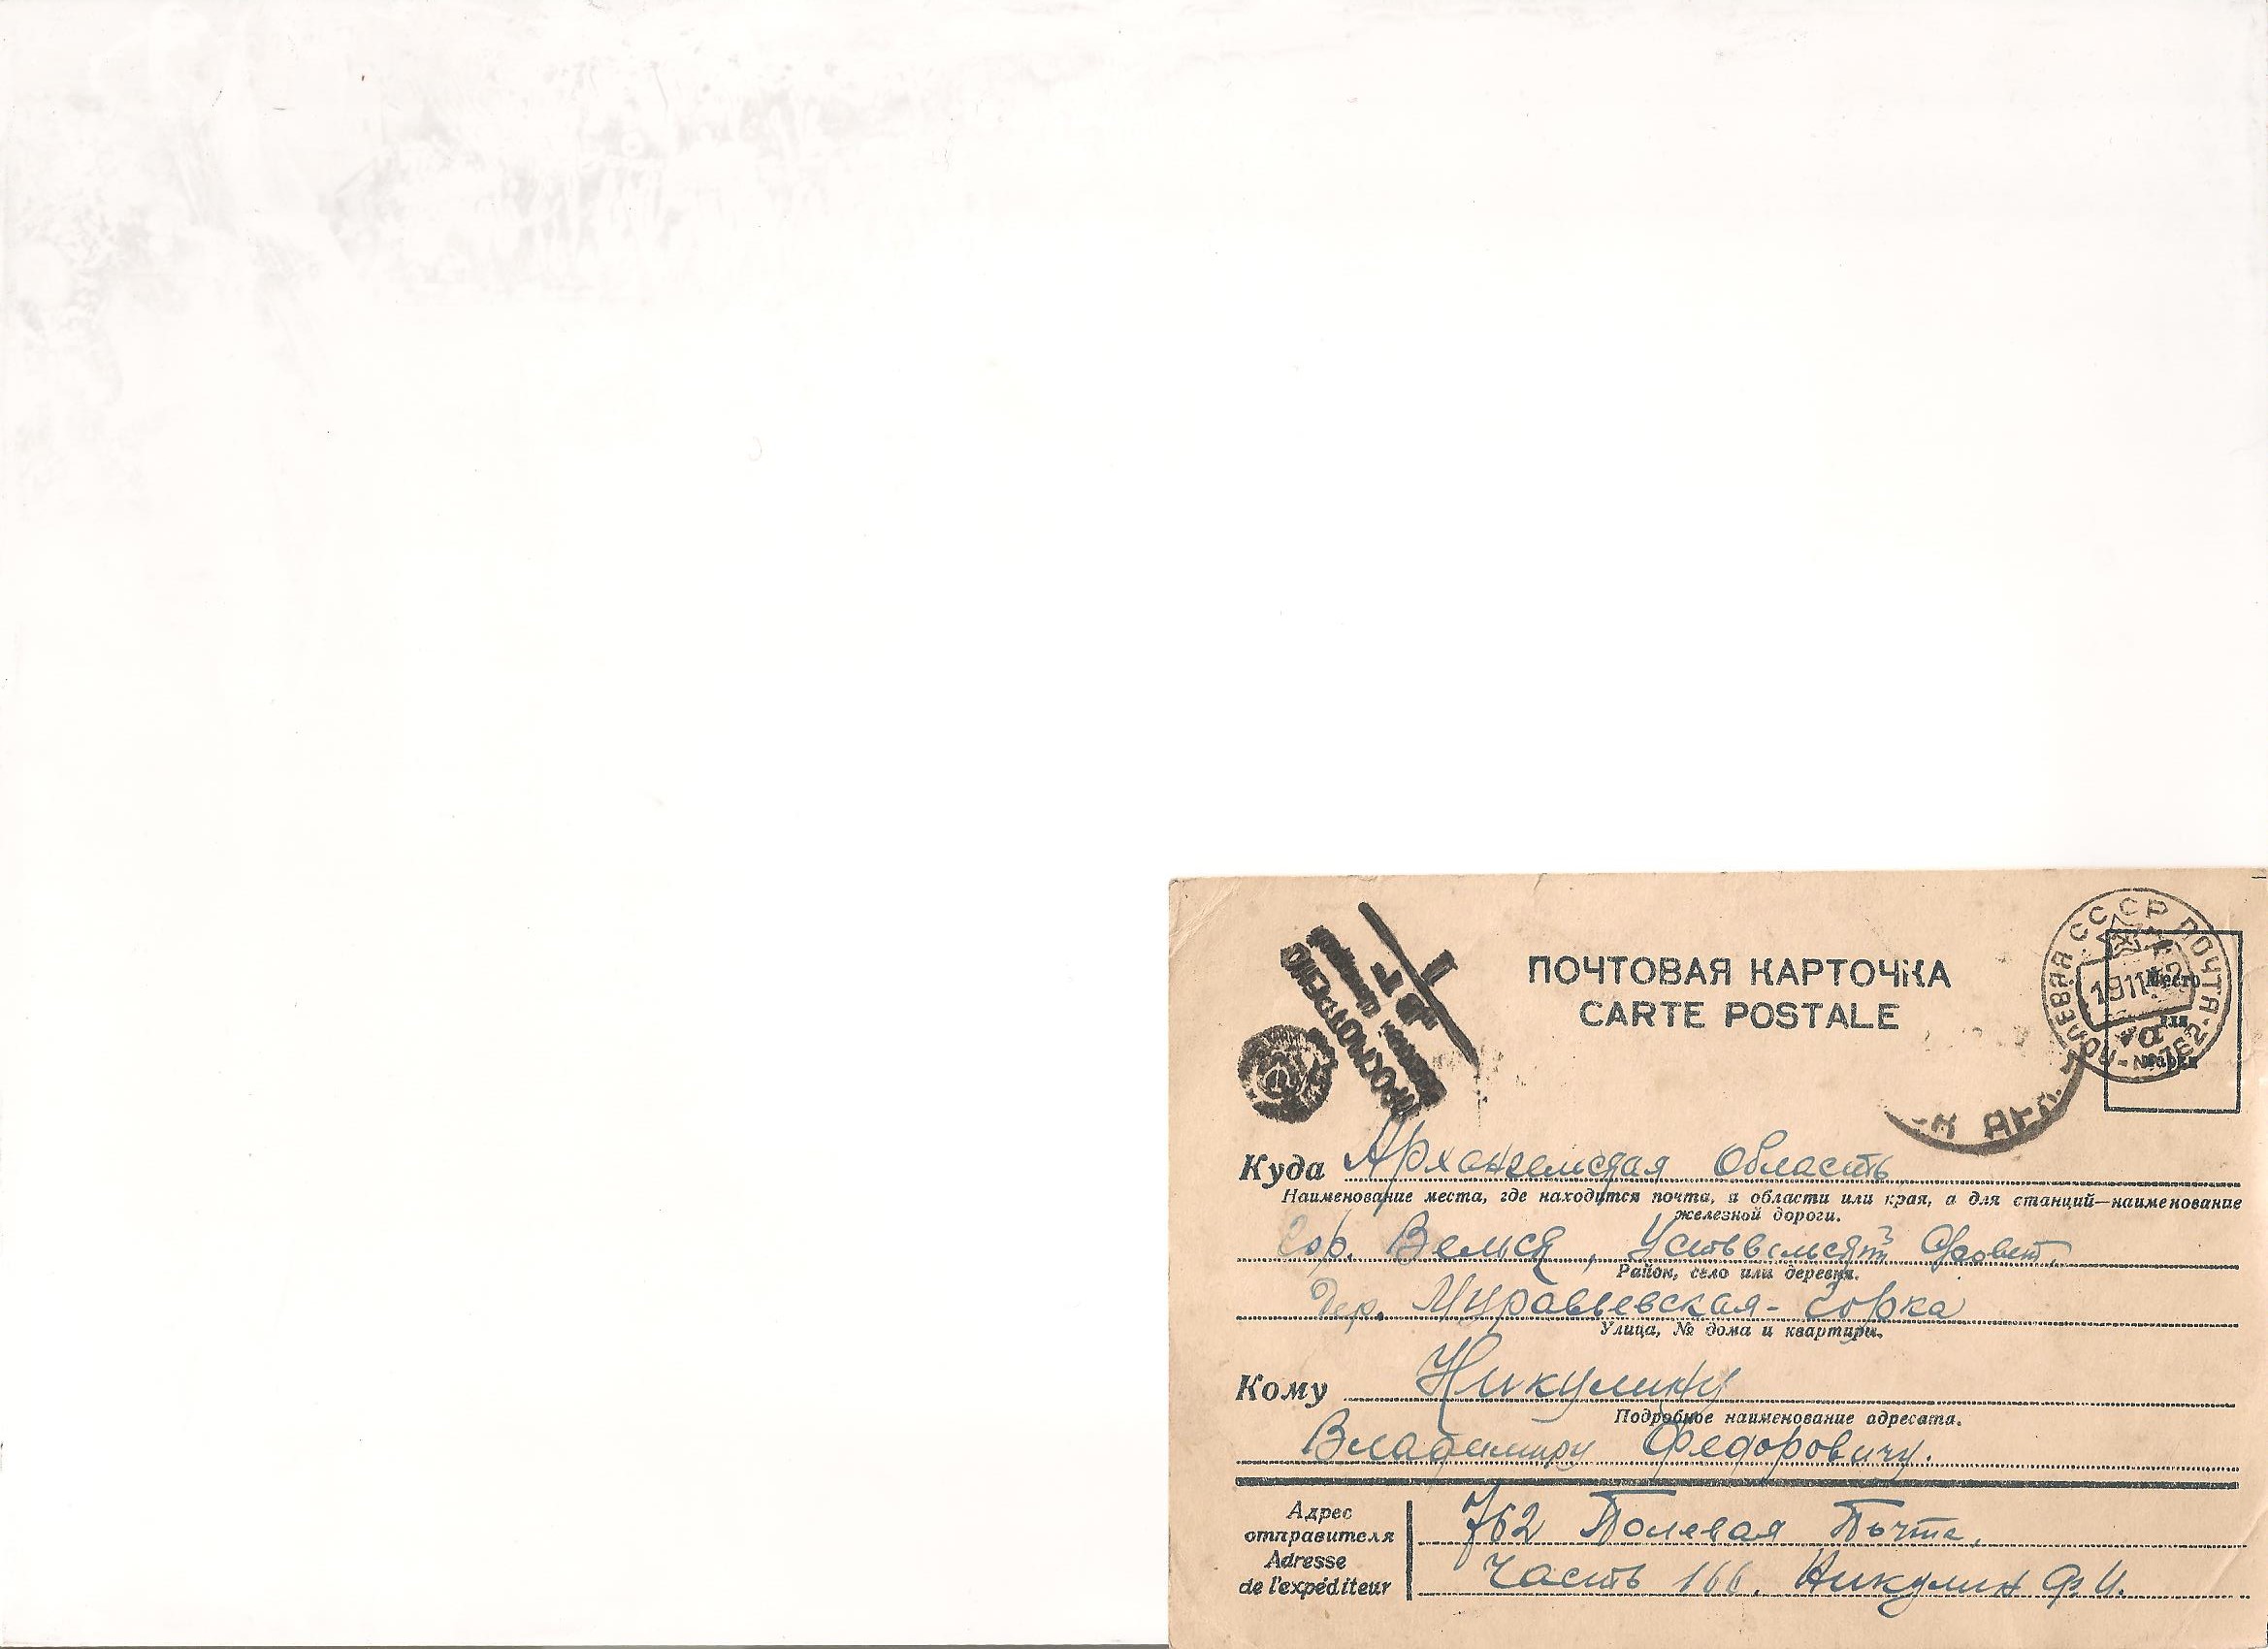 ПОЧТОВАЯ КАРТОЧКА
CARTE POSTALE
ПРОСМОТРЕНО
ПОЛЕВАЯ СССР ПОЧТА
№ 762
Место
для
марки
Куда Архангельская Область
Наименование места, где находится почта, и области или края, а для станций—наименование
железной дороги.
Гор. Вельск, Устьвельский С/совет,
Район, село или деревня.
Дер. Муравьевская-Горка
Улица, № дома и квартиры.
Кому Никулину
Подробное наименование адресата.
Владимиру Федоровичу.
Адрес
отправителя
Adresse
de l'expéditeur
762 Полевая Почта,
Часть 166. Никулин Ф. И.